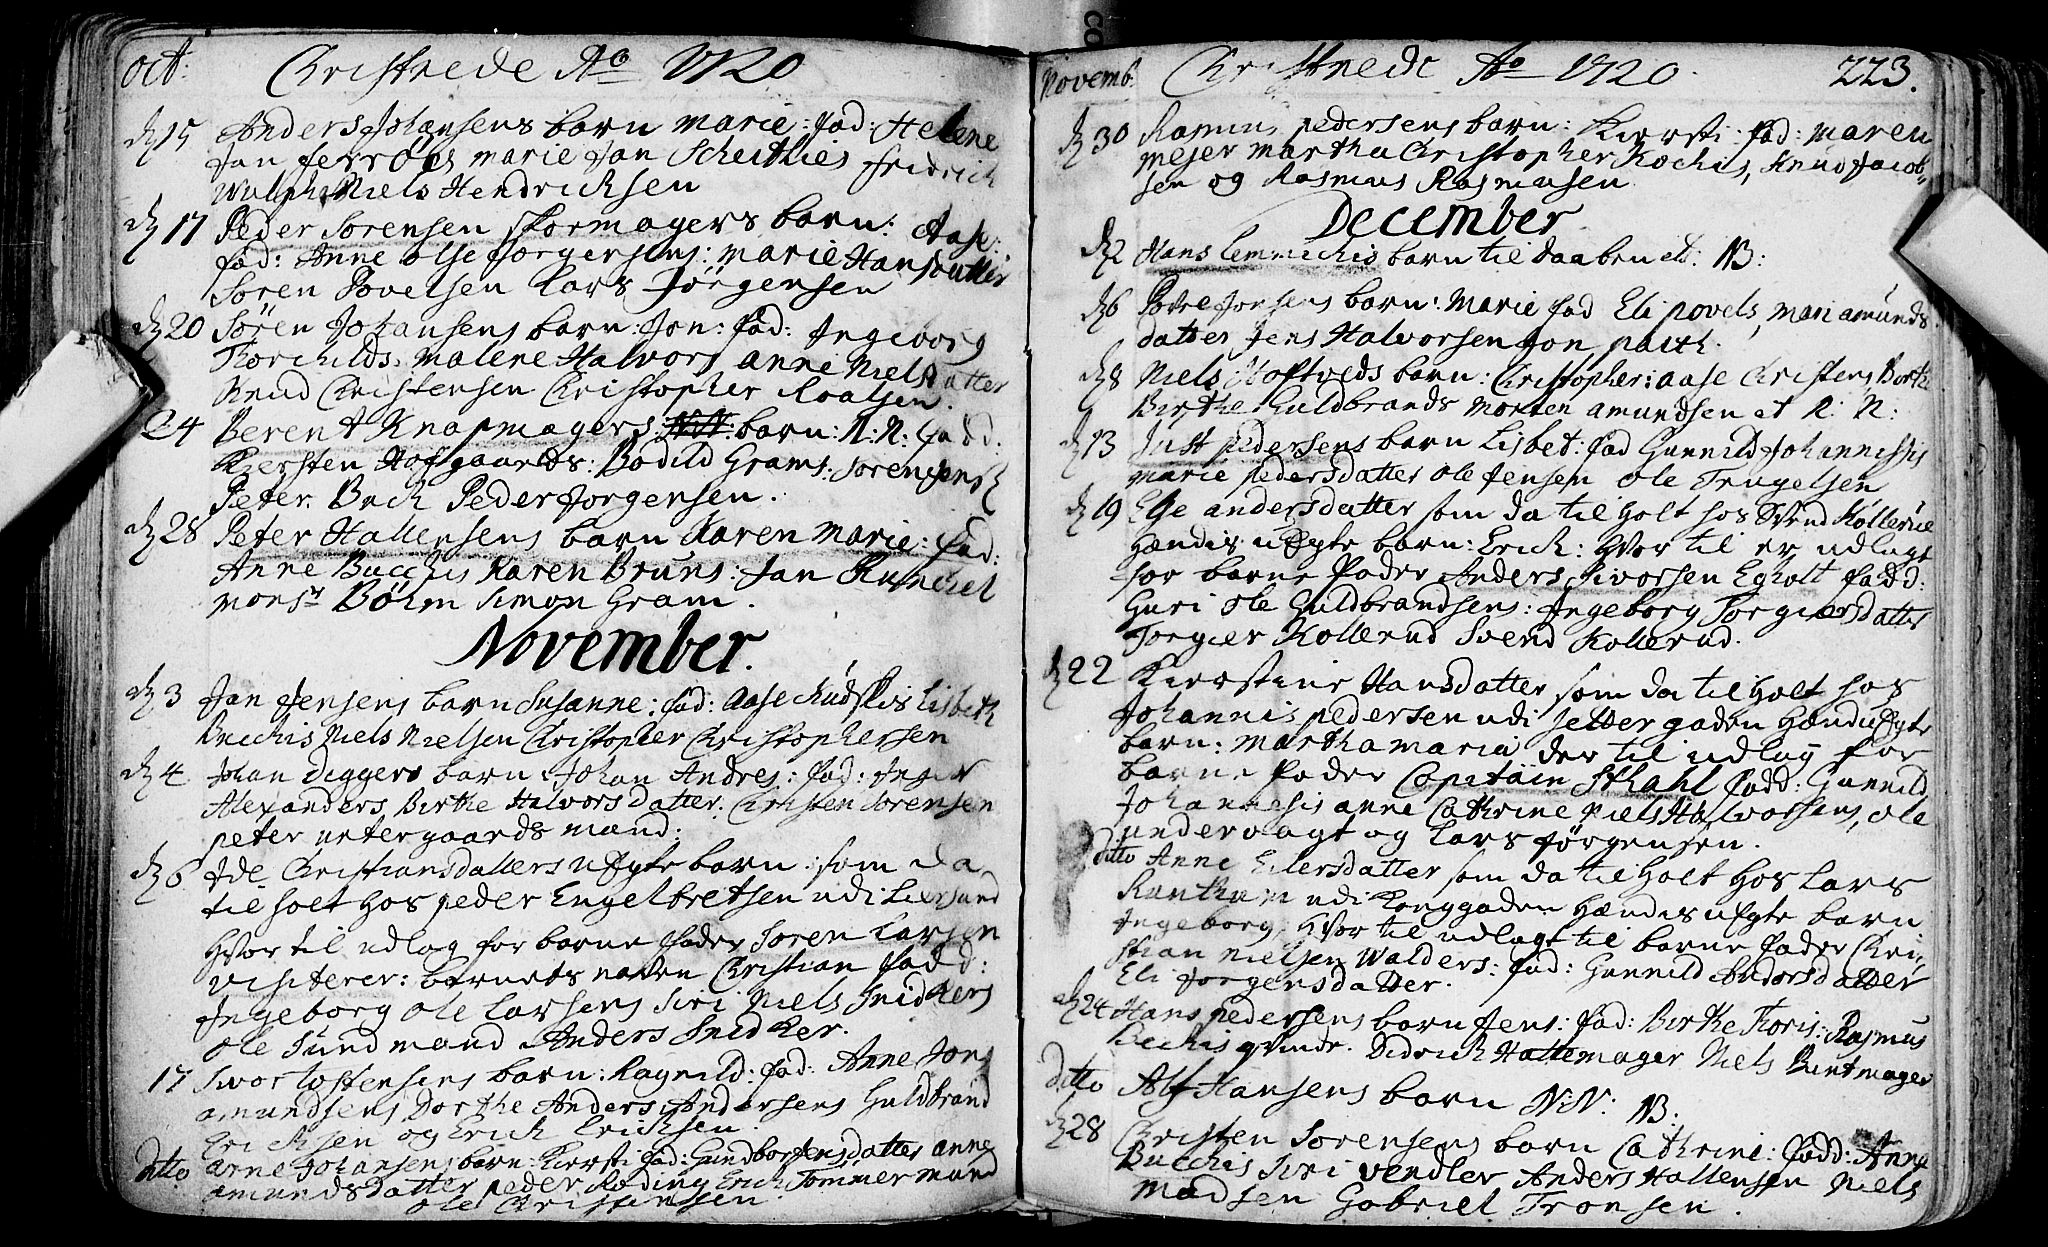 oct: Christnede Ao 1720
d 15 Anders Johansens barn Marie: fad: Helene
Jan ferröes Marie Jan Scheithies fridrich
Wulph Niels Hendricksen
d 17 Peder Sorensen skormagers barn: Aase:
fad: Anne olse Jorgensens: Marie Hans
Sören Povelsen Lars Jörgensen
d 20 Sören Johansens barn: Jon: fad: Ingeborg
Thorchilds, Malene Halvors anne Nielsdatter
Knud Christensen Christopher Roalsen.
24 Berent Knapmagers barn: N: N: fadd.
Kiersten Hofgaards: Bodild Grams: Sorensens
Peter Buch Peder Jorgensen.
d 28 Peter Hallensens barn Karen Marie: fad:
Anne Bucchis Karen Bruns: Jan Runchel
Monsr Böhm Simon Gram.
November.
d 3 Jan Jensens barn Susanne: fad: Aase Lisbeth
Bucchis Niels Nielsen Christopher Christophersen
d 4 Johan diggers barn: Johan Andres: fad: Inger
Alexanders Birthe Halvors datter: Christen Sorensen
peter urtergaards mand:
d 6 Ide Christiansdatters uEgte barn: som da
til holt hos peder Engelbretsen udi Liersund
hvor til udlag for barne fader Soren Larsen
visiterer: barnets nafn Christian fadd:
Ingeborg ole Larsens Siri Niels Snidkers
ole Sundmand Anders Snidker.
17 Ivor tostensens barn: Ragnild: fad: Anne Jons
amundsens Dorthe Anders Andersens Guldbrand
Ericksen og Erick Ericksen.
ditto arne Johansens barn: Kiersti fad: Gundbor Jensdatter anne
amunds datter peder Roding Erick Tömmermand
ole Christensen
Novemb. Christnede Ao 1720. 223.
d 30 Rasmus pedersens barn: Kiersti: fad: Maren
Mejer Martha Christopher Kochis, Knud Jacob-
sen og Rasmus Rasmusen
December
d 2 Hans Lemmichis barn til daaben et: NB:
d 6 Povre Jonsens barn: Marie fad Eli povels, Mari amunds
datter Jens Halvorsen Jon parth.
d 8 Niels Hoftveds barn: Christopher: aase Christens Borthe
Birthe Guldbrands Morten amundsen et N: N:
d 13 Just pedersens barn Lisbet: fad Gunnild Johannissis
Marie pedersdatter ole Jensen ole Trugelsen
d 19 Else andersdatter som da til Holt hos Svend Kollerud
Hendis uEgte barn: Erick: Hvor til er udlagt
for barne fader Anders Sivorsen Egholt fadd:
Guri ole Guldbrandsens: Ingeborg Torgiersdatter
Torgier Kollerud Svend Kollerud.
d 22 Kierstine Hansdatter som da til Holt hos
Johannis pedersen udi Settergaden Hendis uEgte
barn: Martha Maria der til udlag for
barne fader Capitain Sthahl fadd: Gunnild
Johannesis anne Cathrine Niels Halvorsens, ole
undervagt og Lars Jörgensen.
ditto Anne Eilersdatter som da til Holt hos Lars
udi Konggaden Hendis uEgte barn
Ingeborg: Hvor til udlagt til barne fader Chri-
stian Nielsen Walders: fad: Gunnild Andorsdatter
Eli Jorgensdatter.
d 24 Hans pedersens barn Jens: fad: Birthe Thoris: Rasmus
Bechis qvinde. Didrich Hattemager Niels Buntmager
ditto Alf Hansens barn N.N: NB:
d 28 Christen Sorensens barn Cathrine: fadd: Anne
Bucchis Siri vendler Anders Hallensen Niels
Madsen Gabriel Tronsen.